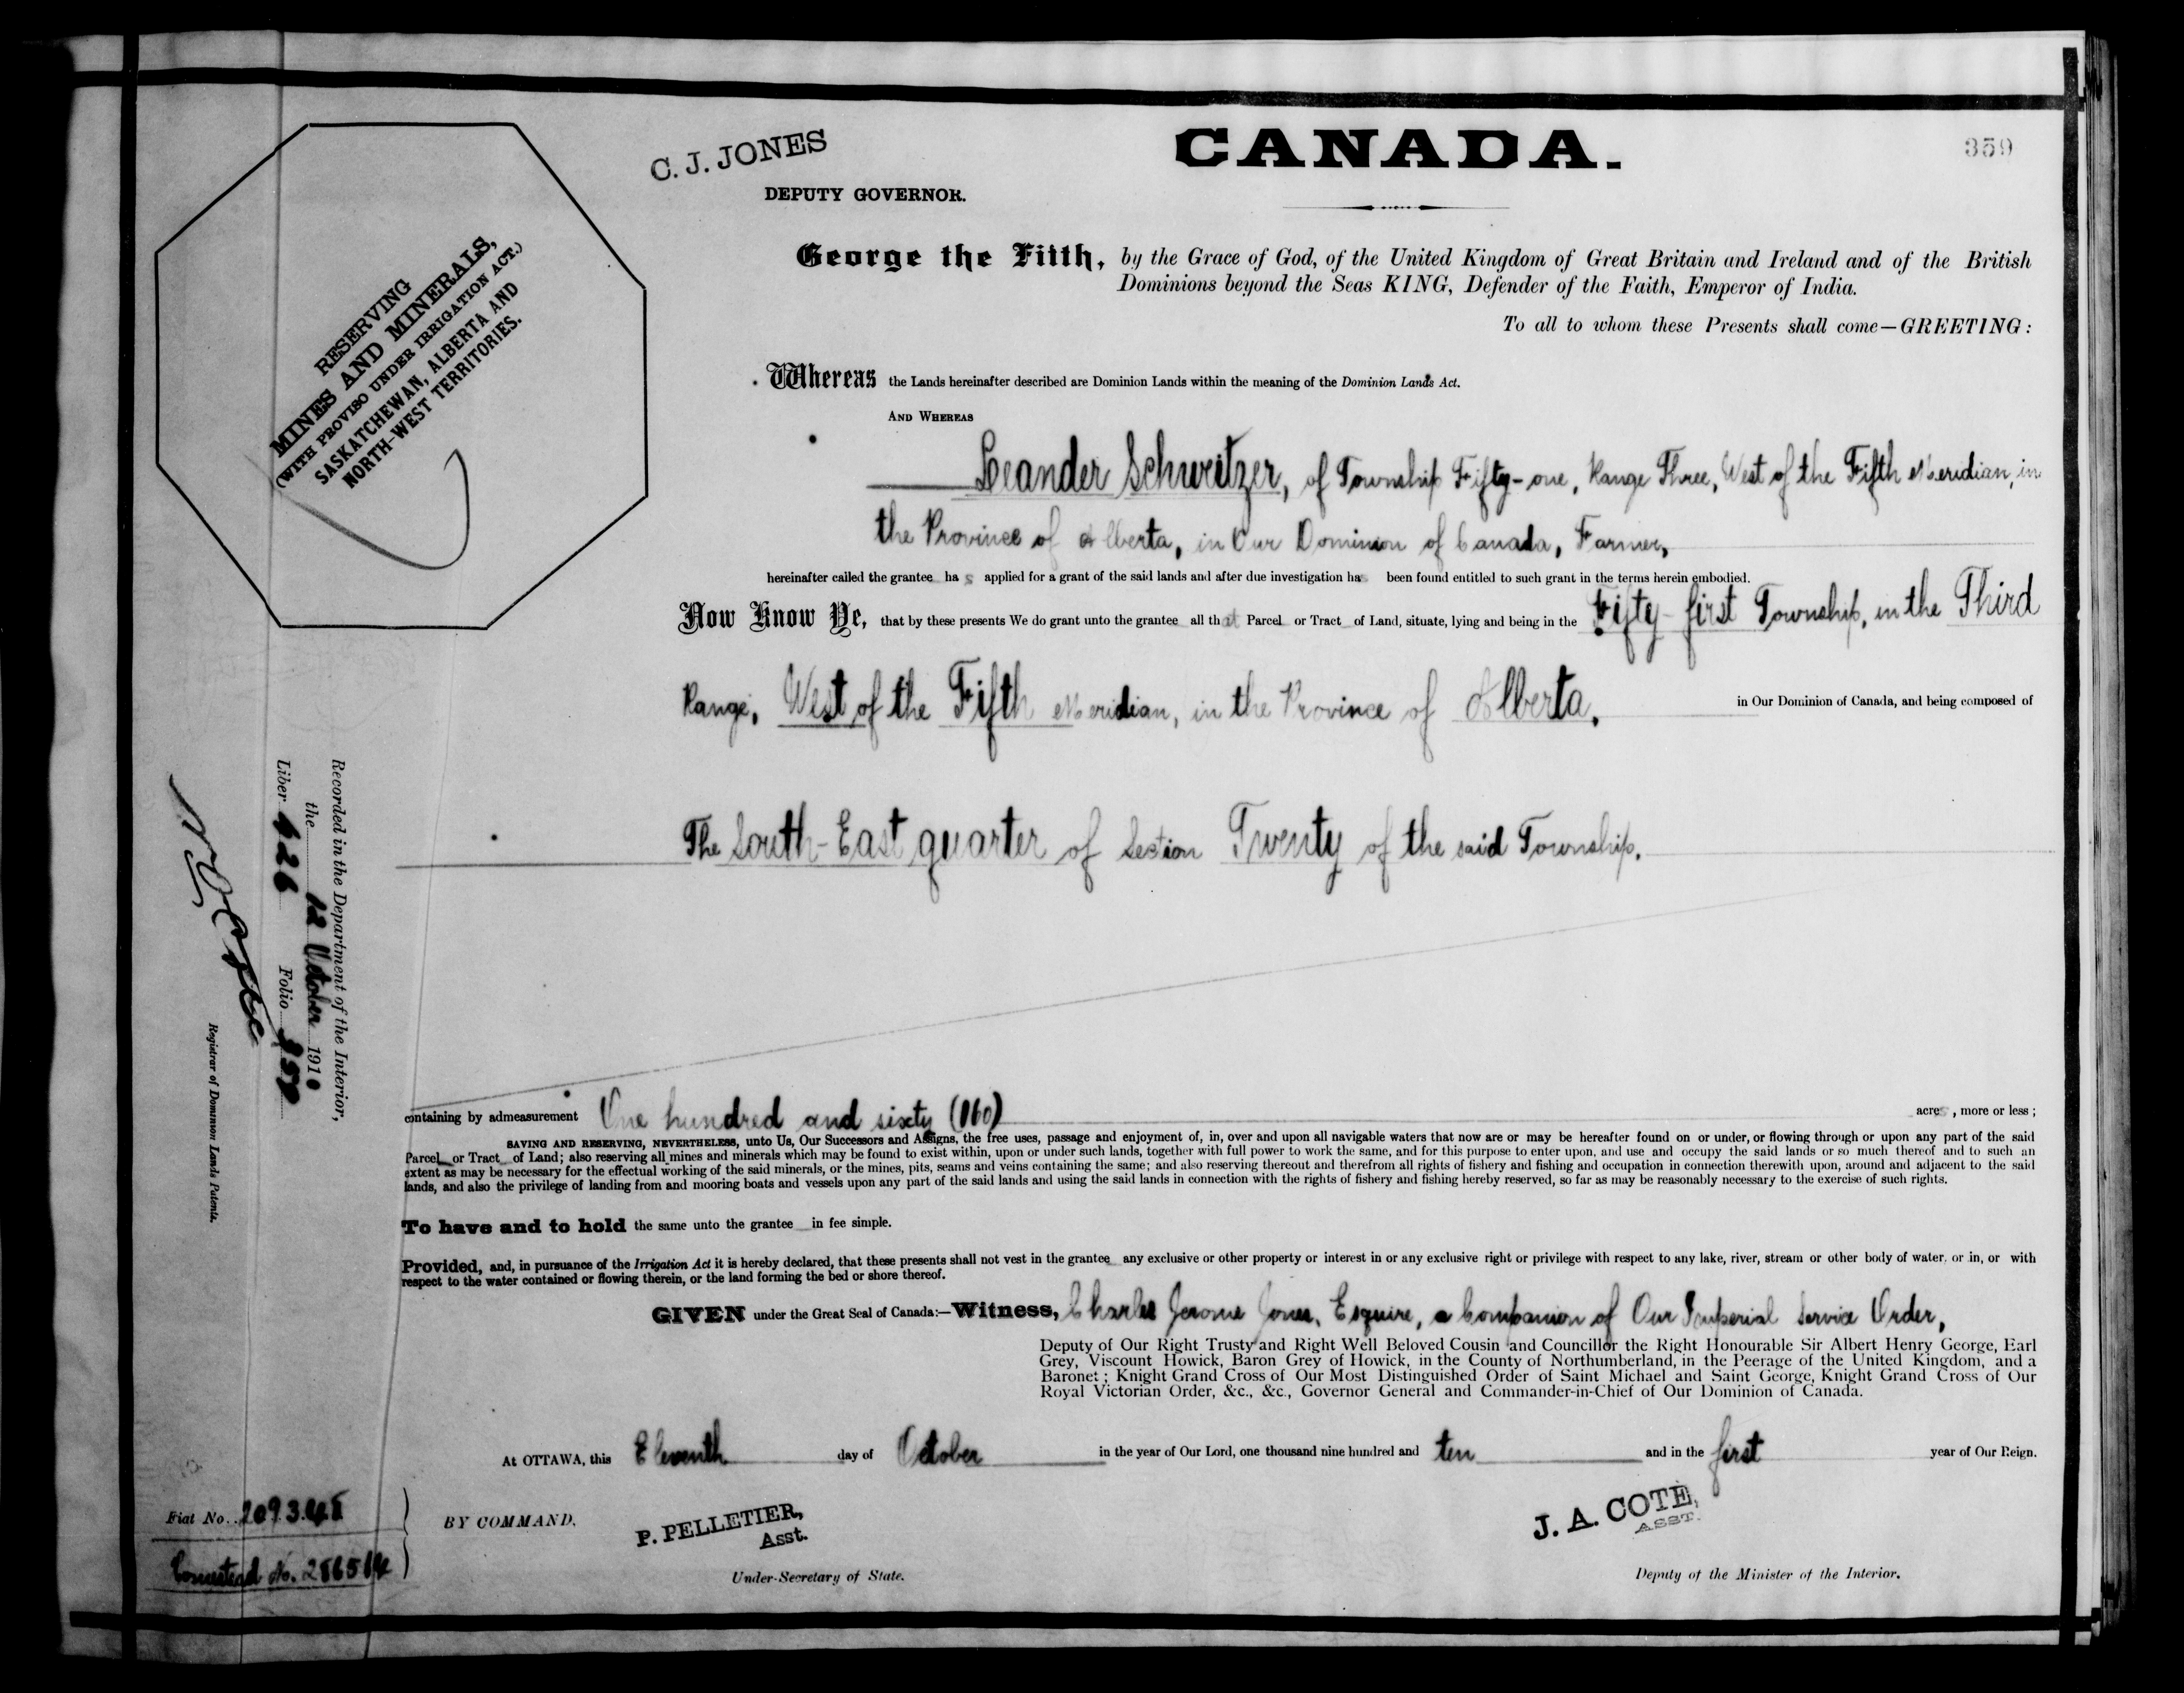 CANADA.
359
C. J. JONES
DEPUTY GOVERNOR.
George the Fifth, by the Grace of God, of the United Kingdom of Great Britain and Ireland and of the British
Dominions beyond the Seas KING, Defender of the Faith, Emperor of India.
To all to whom these Presents shall come—GREETING:
RESERVING
MINES AND MINERALS,
(WITH PROVISO UNDER IRRIGATION ACT.)
SASKATCHEWAN, ALBERTA AND
NORTH-WEST TERRITORIES.
Whereas the Lands hereinafter described are Dominion Lands within the meaning of the Dominion Lands Act.
AND WHEREAS
Leander Schweitzer, of Township Fifty-one, Range Three, West of the Fifth Meridian, in
the Province of Alberta, in Our Dominion of Canada, Farmer,
hereinafter called the grantee has applied for a grant of the said lands and after due investigation has been found entitled to such grant in the terms herein embodied.
Now Know Ye, that by these presents We do grant unto the grantee all that Parcel or Tract of Land, situate, lying and being in the Fifty-first Township, in the Third
Range, West of the Fifth Meridian, in the Province of Alberta, in Our Dominion of Canada, and being composed of
The South-East quarter of Section Twenty of the said Township.
containing by admeasurement One hundred and sixty (160) acres, more or less;
SAVING AND RESERVING, NEVERTHELESS, unto Us, Our Successors and Assigns, the free uses, passage and enjoyment of, in, over and upon all navigable waters that now are or may be hereafter found on or under, or flowing through or upon any part of the said
Parcel or Tract of Land; also reserving all mines and minerals which may be found to exist within, upon or under such lands, together with full power to work the same, and for this purpose to enter upon, and use and occupy the said lands or so much thereof and to such an
extent as may be necessary for the effectual working of the said minerals, or the mines, pits, seams and veins containing the same; and also reserving thereout and therefrom all rights of fishery and fishing and occupation in connection therewith upon, around and adjacent to the said
lands, and also the privilege of landing from and mooring boats and vessels upon any part of the said lands and using the said lands in connection with the rights of fishery and fishing hereby reserved, so far as may be reasonably necessary to the exercise of such rights.
To have and to hold the same unto the grantee in fee simple.
Provided, and, in pursuance of the Irrigation Act it is hereby declared, that these presents shall not vest in the grantee any exclusive or other property or interest in or any exclusive right or privilege with respect to any lake, river, stream or other body of water, or in, or with
respect to the water contained or flowing therein, or the land forming the bed or shore thereof.
GIVEN under the Great Seal of Canada:—Witness, Charles Jerome Jones, Esquire, a Companion of Our Imperial Service Order,
Deputy of Our Right Trusty and Right Well Beloved Cousin and Councillor the Right Honourable Sir Albert Henry George, Earl
Grey, Viscount Howick, Baron Grey of Howick, in the County of Northumberland, in the Peerage of the United Kingdom, and a
Baronet; Knight Grand Cross of Our Most Distinguished Order of Saint Michael and Saint George, Knight Grand Cross of Our
Royal Victorian Order, &c., &c., Governor General and Commander-in-Chief of Our Dominion of Canada.
At OTTAWA, this Eleventh day of October in the year of Our Lord, one thousand nine hundred and ten and in the first year of Our Reign.
BY COMMAND,
P. PELLETIER,
Asst.
Under-Secretary of State.
J. A. COTE,
ASST.
Deputy of the Minister of the Interior.
Recorded in the Department of the Interior,
the 12 October 1910
Liber 626 Folio 359
Registrar of Dominion Lands Patents.
Fiat No.
No.